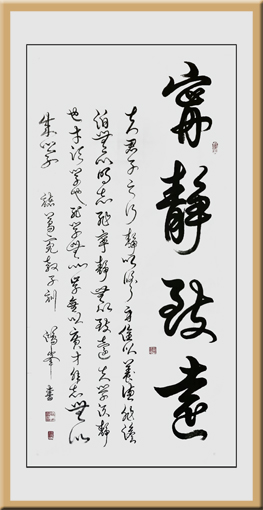 寧靜致遠
夫君子之行靜以修身儉以養德非澹
泊無以明志非寧靜無以致遠夫學須靜
也才須學也非學無以廣才非志無以
成學 葛亮教子 書